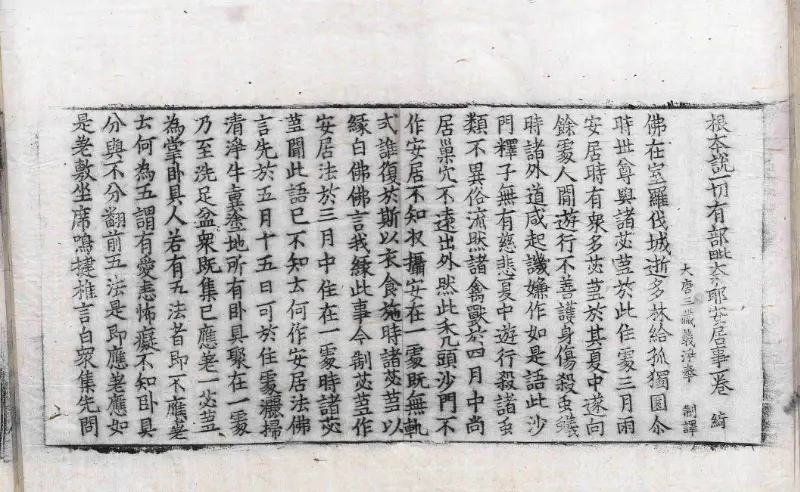 根本說一切有部毗奈耶安居事一卷 綺
大唐三藏義淨奉 制譯
佛在室羅伐城逝多林給孤獨園尒
時世尊與諸苾蒭於此住處三月雨
安居時有衆多苾蒭於其夏中遂向
餘處人間遊行不善護身傷殺虫蟻
時諸外道咸起譏嫌作如是語此沙
門釋子無有慈悲夏中遊行殺諸虫
類不異俗流然諸禽獸於四月中尚
居巢穴不遠出外然此禿頭沙門不
作安居不知收攝安在一處既無軌
式誰復於斯以衣食施時諸苾蒭以
緣白佛佛言我緣此事今制苾蒭作
安居法於三月中住在一處時諸苾
蒭聞此語已不知云何作安居法佛
言先於五月十五日可於住處灑掃
清淨牛糞塗地所有卧具聚在一處
乃至洗足盆衆既集已應差一苾蒭
為掌卧具人若有五法者即不應差
云何為五謂有愛恚怖癡不知卧具
分與不分翻前五法是即應差應如
是差敷坐席鳴揵椎言白衆集先問